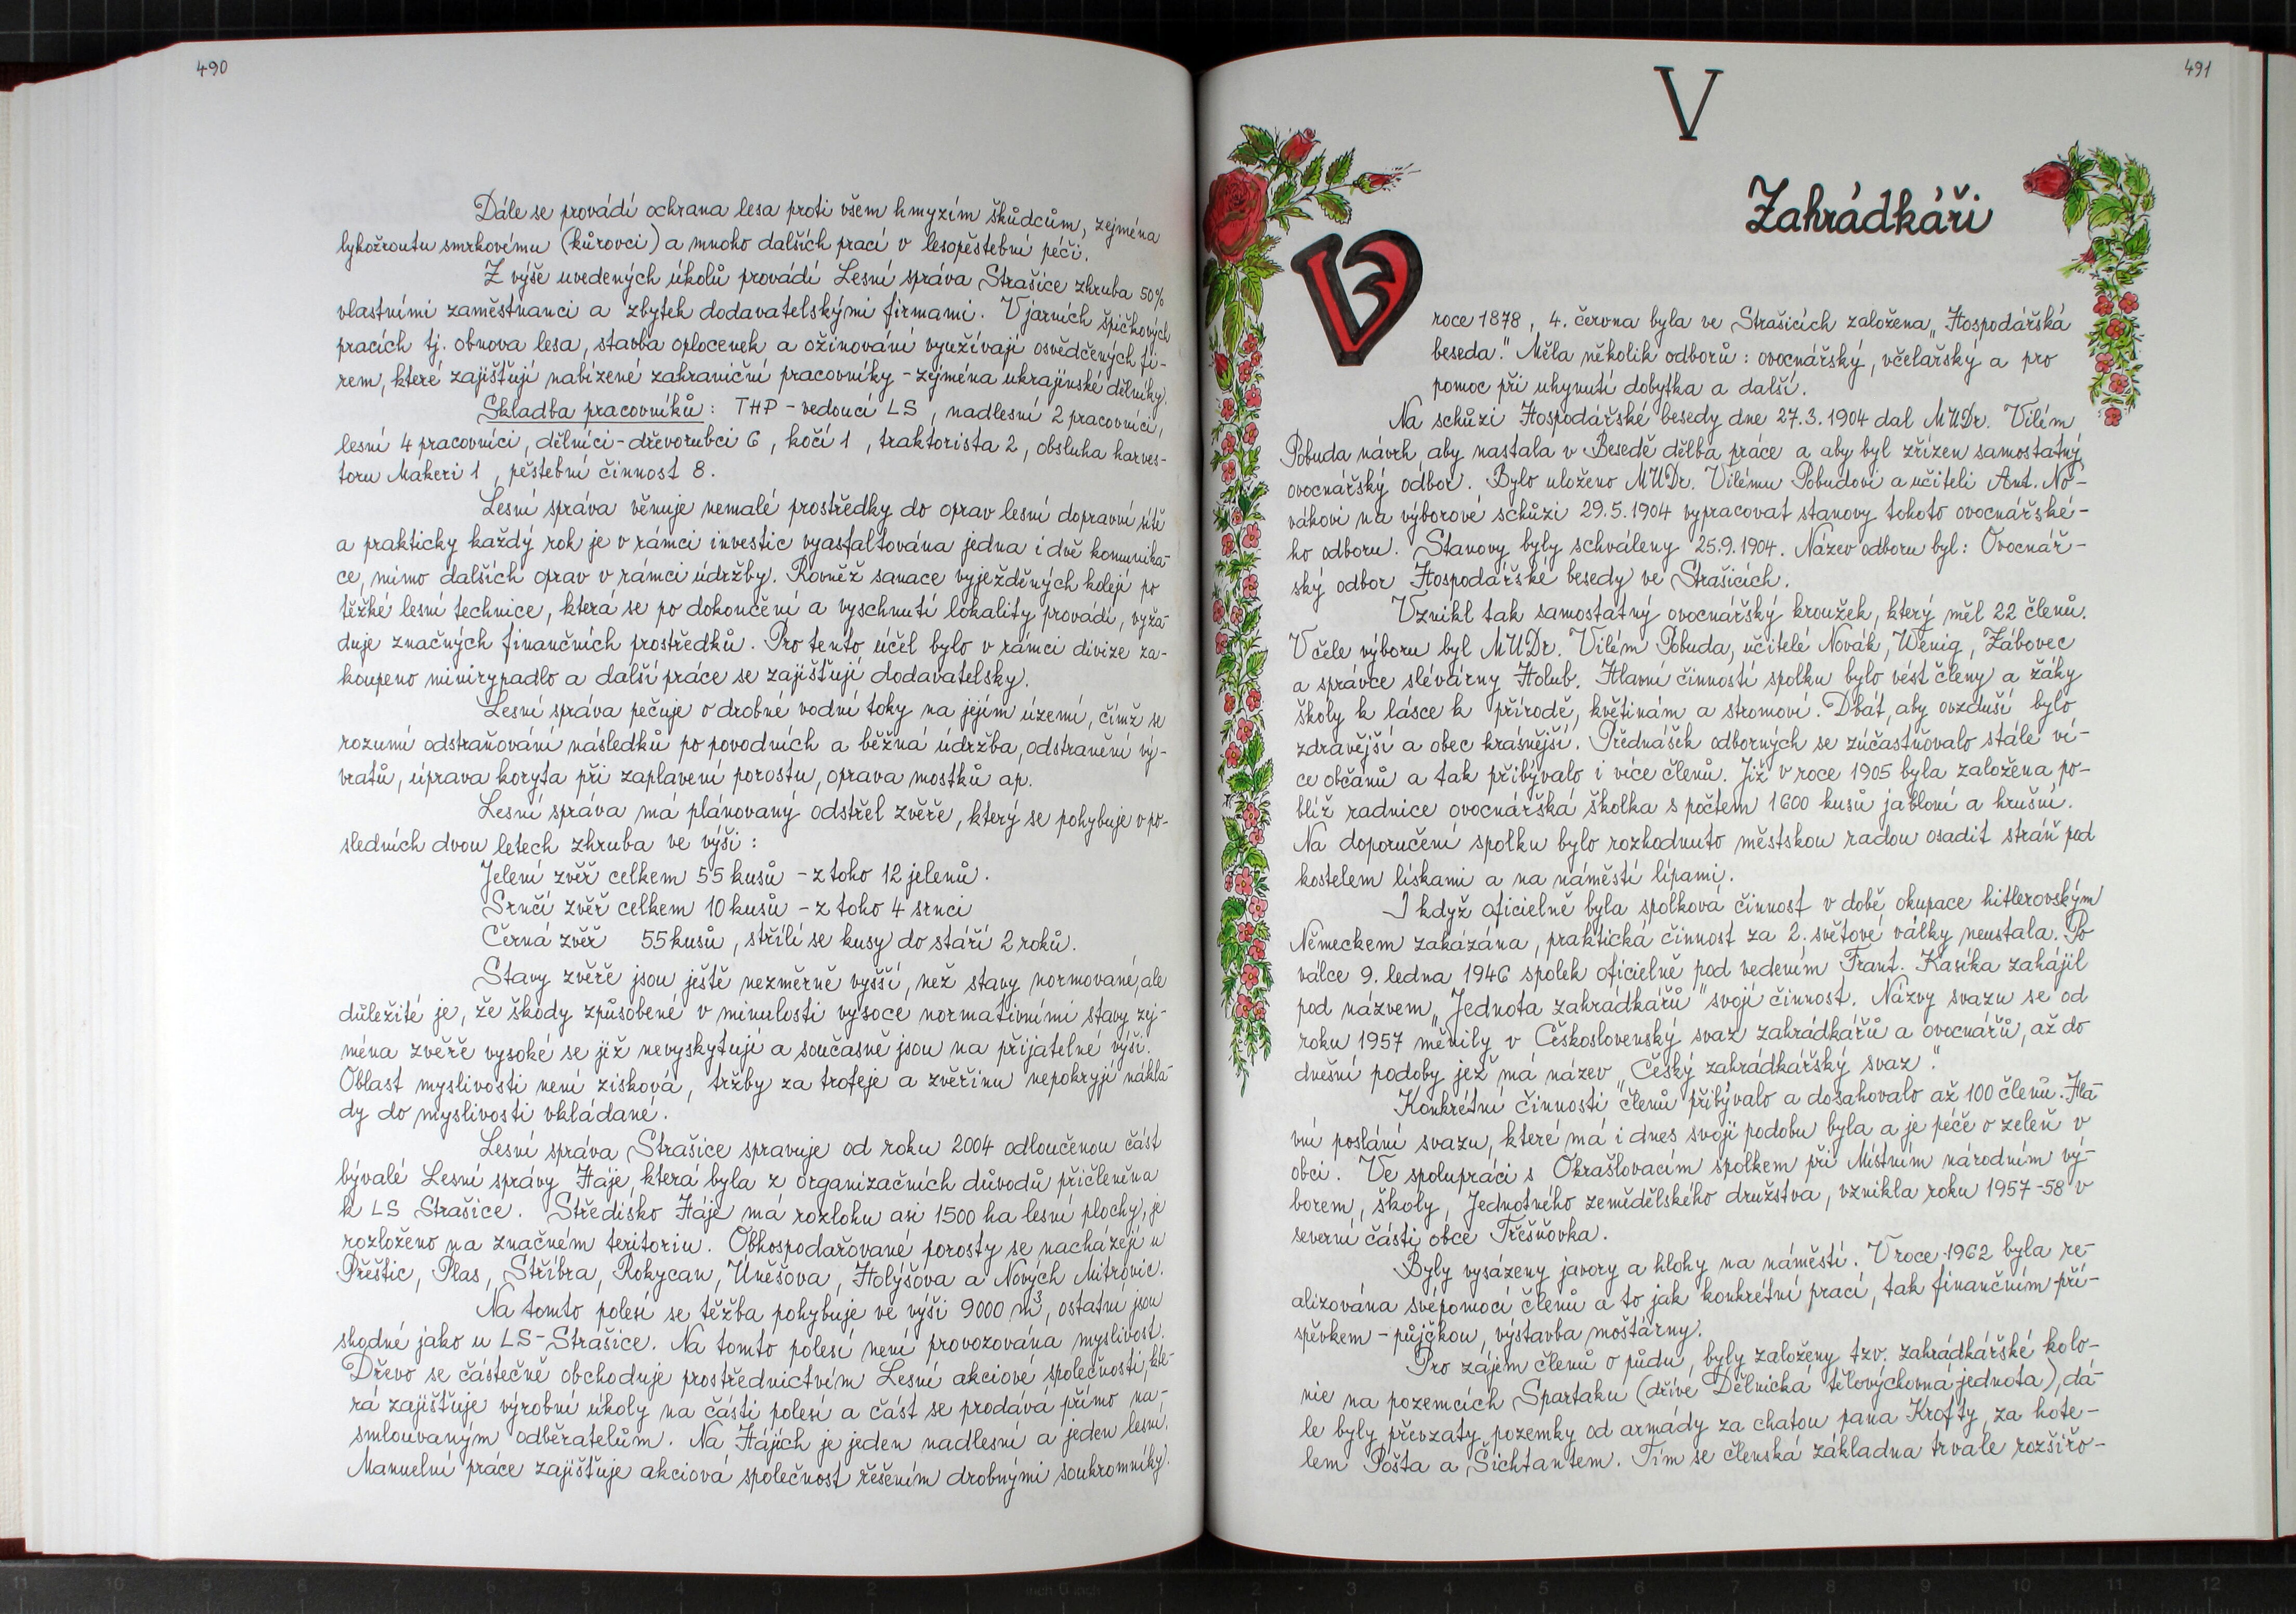 490
Dále se provádí ochrana lesa proti všem hmyzím škůdcům, zejména
lykožroutu smrkovému (kůrovci) a mnoho dalších prací v lesopěstební péči.
Z výše uvedených úkolů provádí Lesní správa Strašice zhruba 50%
vlastními zaměstnanci a zbytek dodavatelskými firmami. V jarních špičkových
pracích tj. obnova lesa, stavba oplocenek a ožínování využívají osvědčených fi-
rem, které zajišťují nabízené zahraniční pracovníky - zejména ukrajinské dělníky.
Skladba pracovníků: THP - vedoucí LS, nadlesní 2 pracovníci,
lesní 4 pracovníci, dělníci - dřevorubci 6, kočí 1, traktorista 2, obsluha harves-
toru Makeri 1, pěstební činnost 8.
Lesní správa věnuje nemalé prostředky do oprav lesní dopravní sítě
a prakticky každý rok je v rámci investic vyasfaltována jedna i dvě komunika-
ce, mimo dalších oprav v rámci údržby. Rovněž sanace vyježděných kolejí po
těžké lesní technice, která se po dokončení a vyschnutí lokality provádí, vyža-
duje značných finančních prostředků. Pro tento účel bylo v rámci divize za-
koupeno minirypadlo a další práce se zajišťují dodavatelsky.
Lesní správa pečuje o drobné vodní toky na jejím území, čímž se
rozumí odstraňování následků po povodních a běžná údržba, odstranění vý-
vratů, úprava koryta při zaplavení porostu, oprava mostků ap.
Lesní správa má plánovaný odstřel zvěře, který se pohybuje v po-
sledních dvou letech zhruba ve výši:
Jelení zvěř celkem 55 kusů - z toho 12 jelenů.
Srnčí zvěř celkem 10 kusů - z toho 4 srnci
Černá zvěř 55 kusů, střílí se kusy do stáří 2 roků.
Stavy zvěře jsou ještě nezměrně vyšší, než stavy normované, ale
důležité je, že škody způsobené v minulosti vysoce normativními stavy zej-
ména zvěře vysoké se již nevyskytují a současně jsou na přijatelné výši.
Oblast myslivosti není zisková, tržby za trofeje a zvěřinu nepokryjí nákla-
dy do myslivosti vkládané.
Lesní správa Strašice spravuje od roku 2004 odloučenou část
bývalé Lesní správy Háje, která byla z organizačních důvodů přičleněna
k LS Strašice. Středisko Háje má rozlohu asi 1500 ha lesní plochy, je
rozloženo na značném teritoriu. Obhospodařované porosty se nacházejí u
Přeštic, Plas, Stříbra, Rokycan, Úněšova, Holýšova a Nových Mitrovic.
Na tomto polesí se těžba pohybuje ve výši 9000 m³, ostatní jsou
shodné jako u LS - Strašice. Na tomto polesí není provozována myslivost.
Dřevo se částečně obchoduje prostřednictvím Lesní akciové společnosti, kte-
rá zajišťuje výrobní úkoly na části polesí a část se prodává přímo na-
smlouvaným odběratelům. Na Hájích je jeden nadlesní a jeden lesní.
Manuelní práce zajišťuje akciová společnost řešením drobnými soukromníky.
491
V
Zahrádkáři
V
roce 1878, 4. června byla ve Strašicích založena „Hospodářská
beseda." Měla několik odborů: ovocnářský, včelařský a pro
pomoc při uhynutí dobytka a další.
Na schůzi Hospodářské besedy dne 27.3.1904 dal MUDr. Vilém
Pobuda návrh, aby nastala v Besedě dělba práce a aby byl zřízen samostatný
ovocnářský odbor. Bylo uloženo MUDr. Vilému Pobudovi a učiteli Ant. No-
vákovi na výborové schůzi 29.5.1904 vypracovat stanovy tohoto ovocnářské-
ho odboru. Stanovy byly schváleny 25.9.1904. Název odboru byl: Ovocnář-
ský odbor Hospodářské besedy ve Strašicích.
Vznikl tak samostatný ovocnářský kroužek, který měl 22 členů.
V čele výboru byl MUDr. Vilém Pobuda, učitelé Novák, Wenig, Zábovec
a správce slévárny Holub. Hlavní činností spolku bylo vést členy a žáky
školy k lásce k přírodě, květinám a stromoví. Dbát, aby ovzduší bylo
zdravější a obec krásnější. Přednášek odborných se zúčastňovalo stále ví-
ce občanů a tak přibývalo i více členů. Již v roce 1905 byla založena po-
blíž radnice ovocnářská školka s počtem 1600 kusů jabloní a hrušní.
Na doporučení spolku bylo rozhodnuto městskou radou osadit stráň pod
kostelem lískami a na náměstí lípami.
I když oficielně byla spolková činnost v době okupace hitlerovským
Německem zakázána, praktická činnost za 2. světové války neustala. Po
válce 9. ledna 1946 spolek oficielně pod vedením Frant. Kasíka zahájil
pod názvem „Jednota zahrádkářů" svojí činnost. Názvy svazu se od
roku 1957 měnily v Československý svaz zahrádkářů a ovocnářů, až do
dnešní podoby jež má název „Český zahrádkářský svaz".
Konkrétní činností členů přibývalo a dosahovalo až 100 členů. Hla-
vní poslání svazu, které má i dnes svoji podobu byla a je péče o zeleň v
obci. Ve spolupráci s Okrašlovacím spolkem při Místním národním vý-
borem, školy, Jednotného zemědělského družstva, vznikla roku 1957-58 v
severní části obce Třešňovka.
Byly vysázeny javory a hlohy na náměstí. V roce 1962 byla re-
alizována svépomocí členů a to jak konkrétní prací, tak finančním pří-
spěvkem - půjčkou, výstavba moštárny.
Pro zájem členů o půdu, byly založeny tzv. zahrádkářské kolo-
nie na pozemcích Spartaku (dříve Dělnická tělovýchovná jednota), dá-
le byly převzaty pozemky od armády za chatou pana Krofty, za hote-
lem Pošta a Šichtantem. Tím se členská základna trvale rozšiřo-